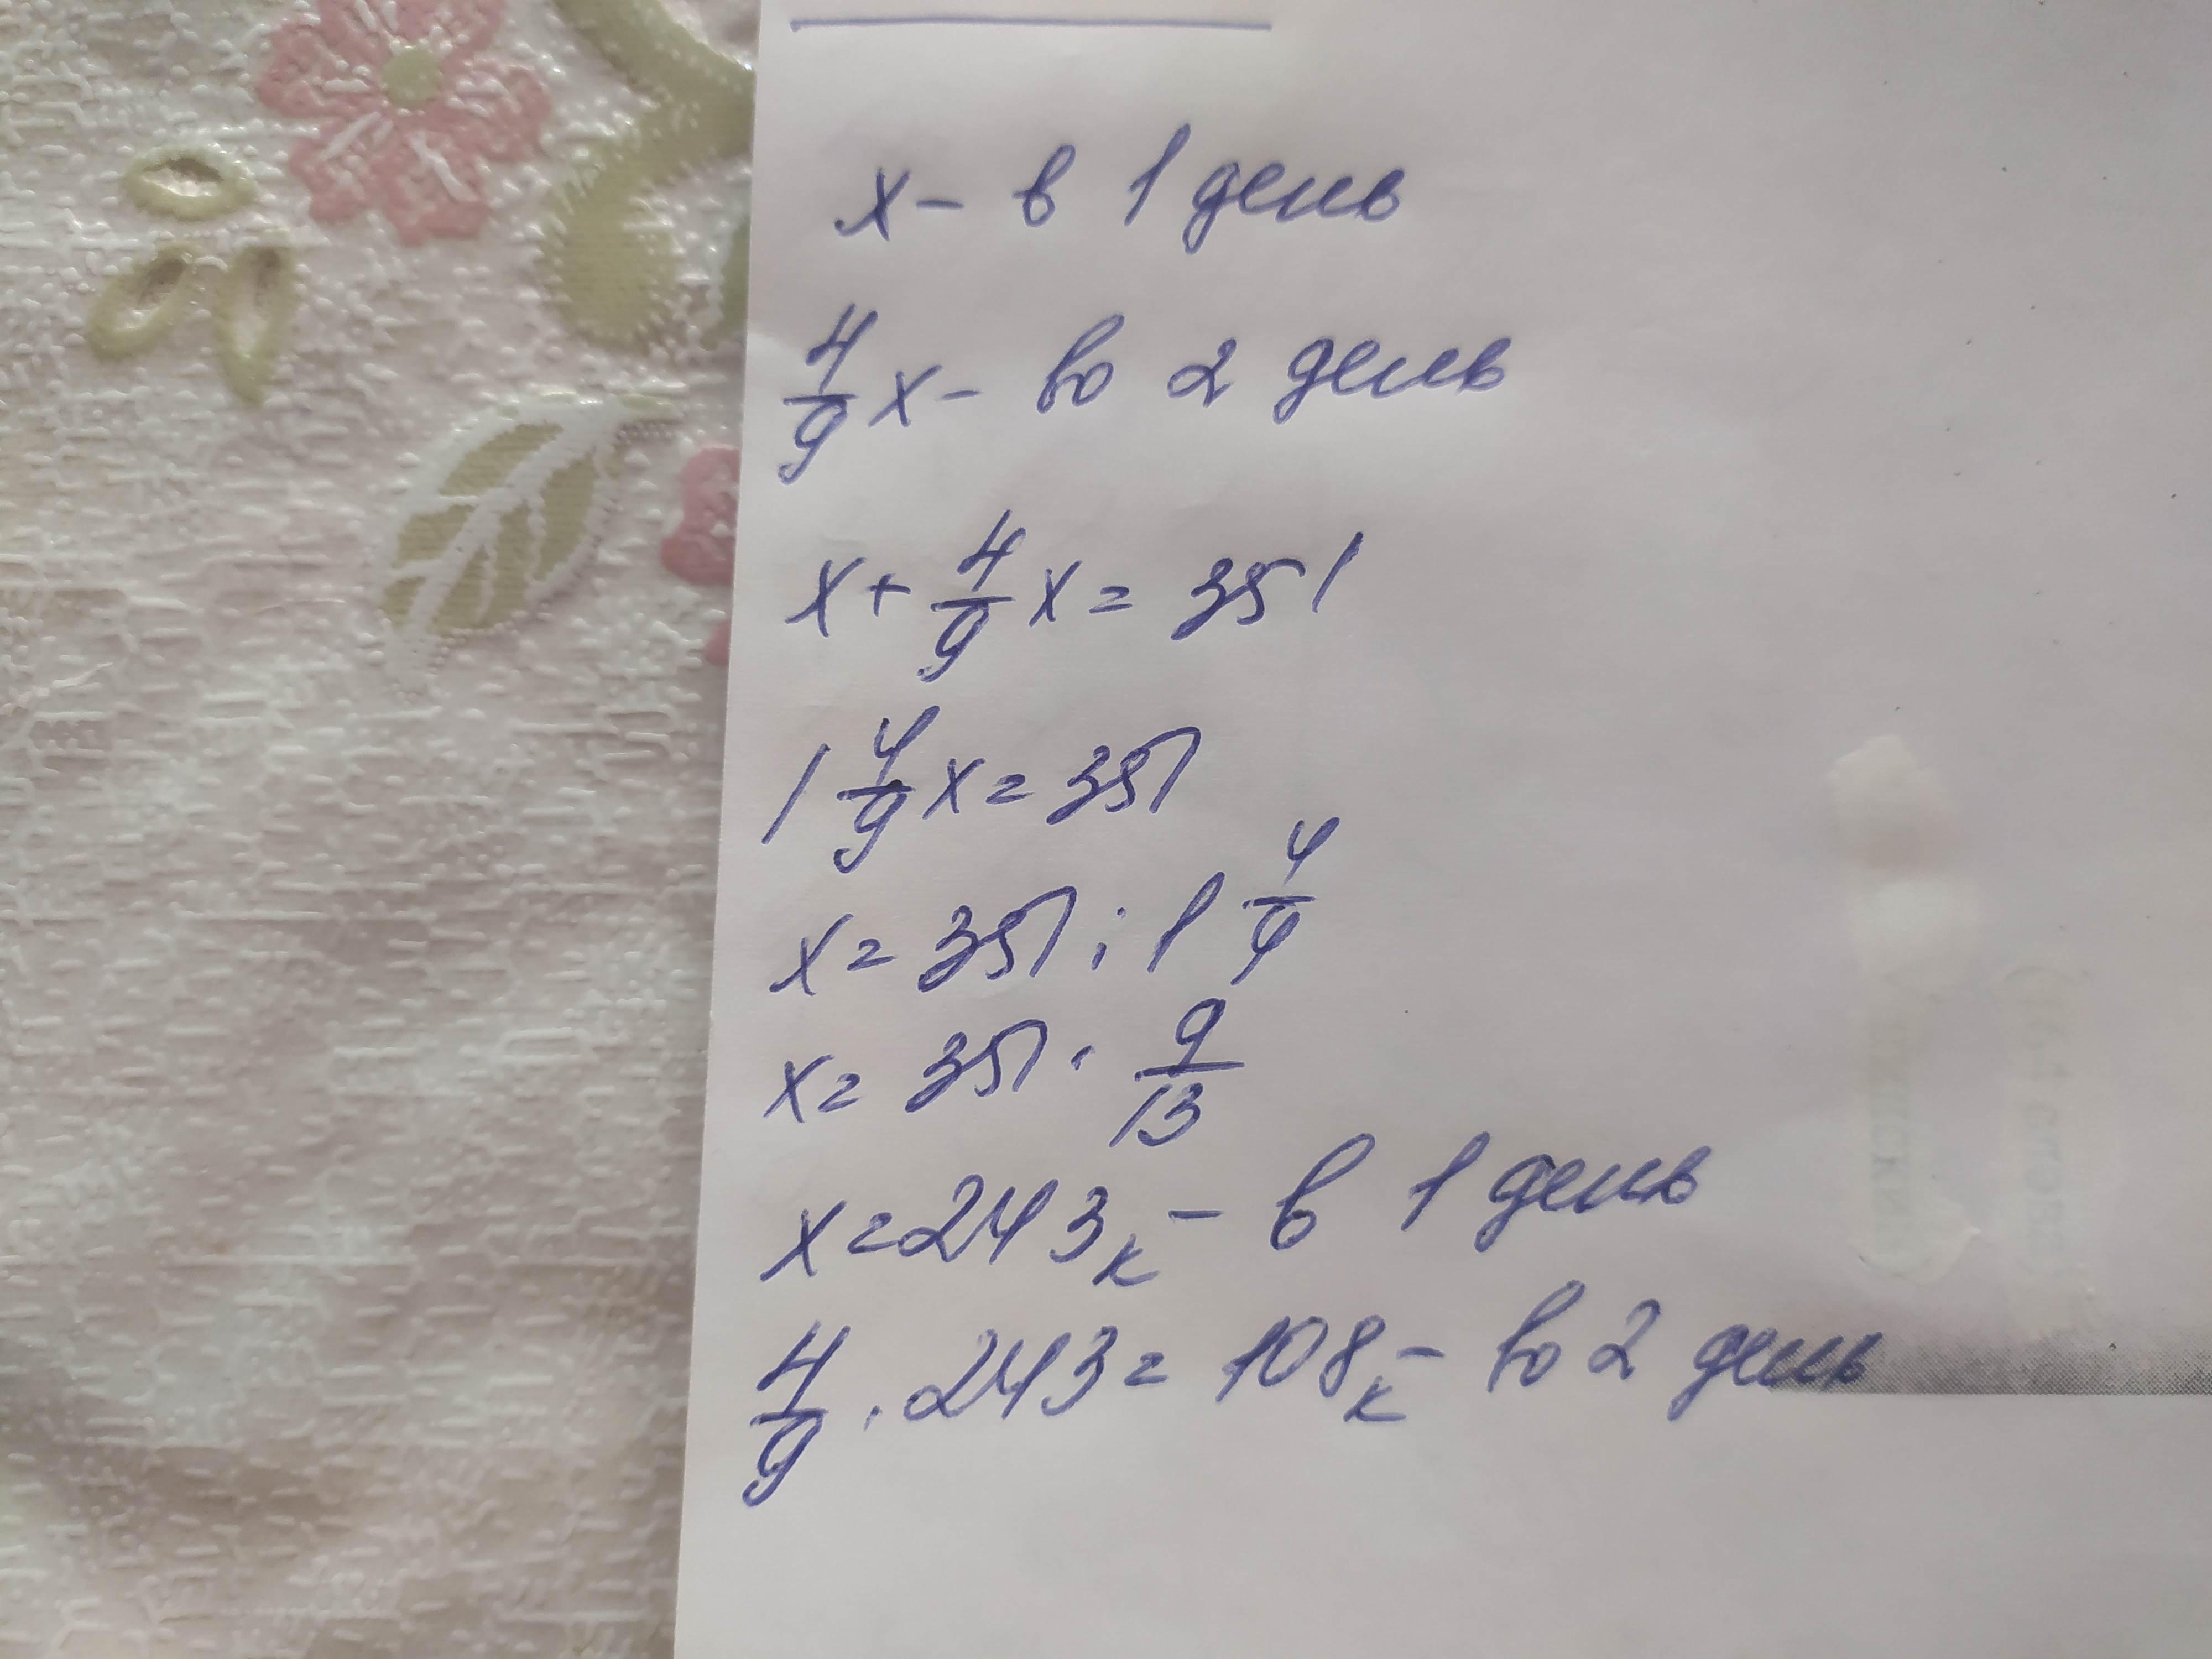 x - в 1 день
4/9 x - во 2 день
x + 4/9 x = 351
1 4/9 x = 351
x = 351 : 1 4/9
x = 351 · 9/13
x = 243к - в 1 день
4/9 · 243 = 108к - во 2 день